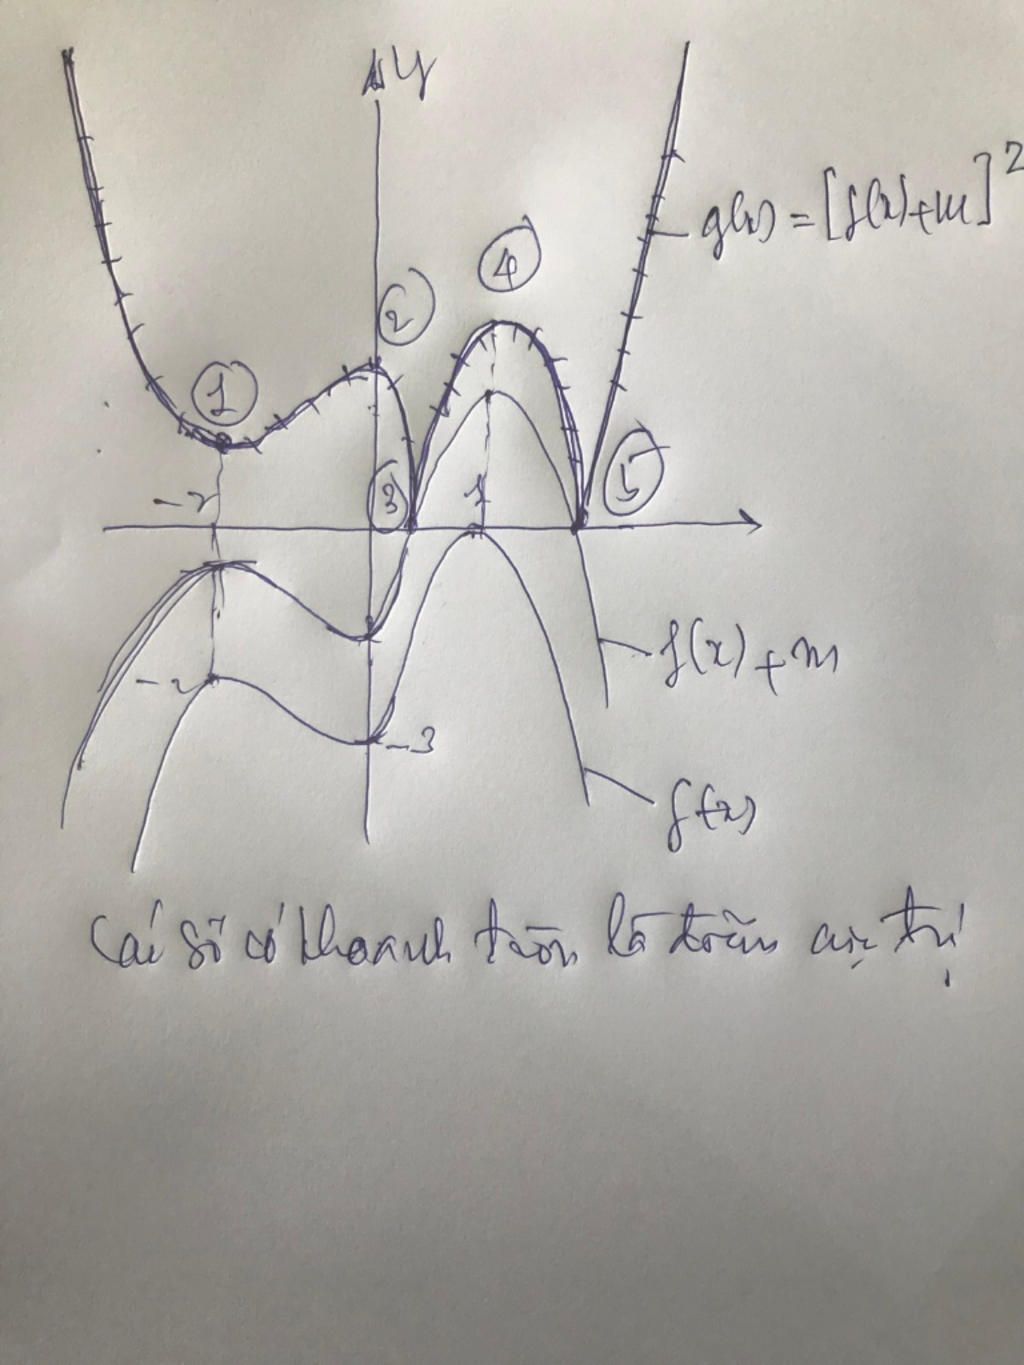 y
g(x) = [f(x)+m]²
4
2
1
5
-2
3
1
f(x)+m
-2
-3
f(x)
Cái số có khoanh tròn là điểm cực trị